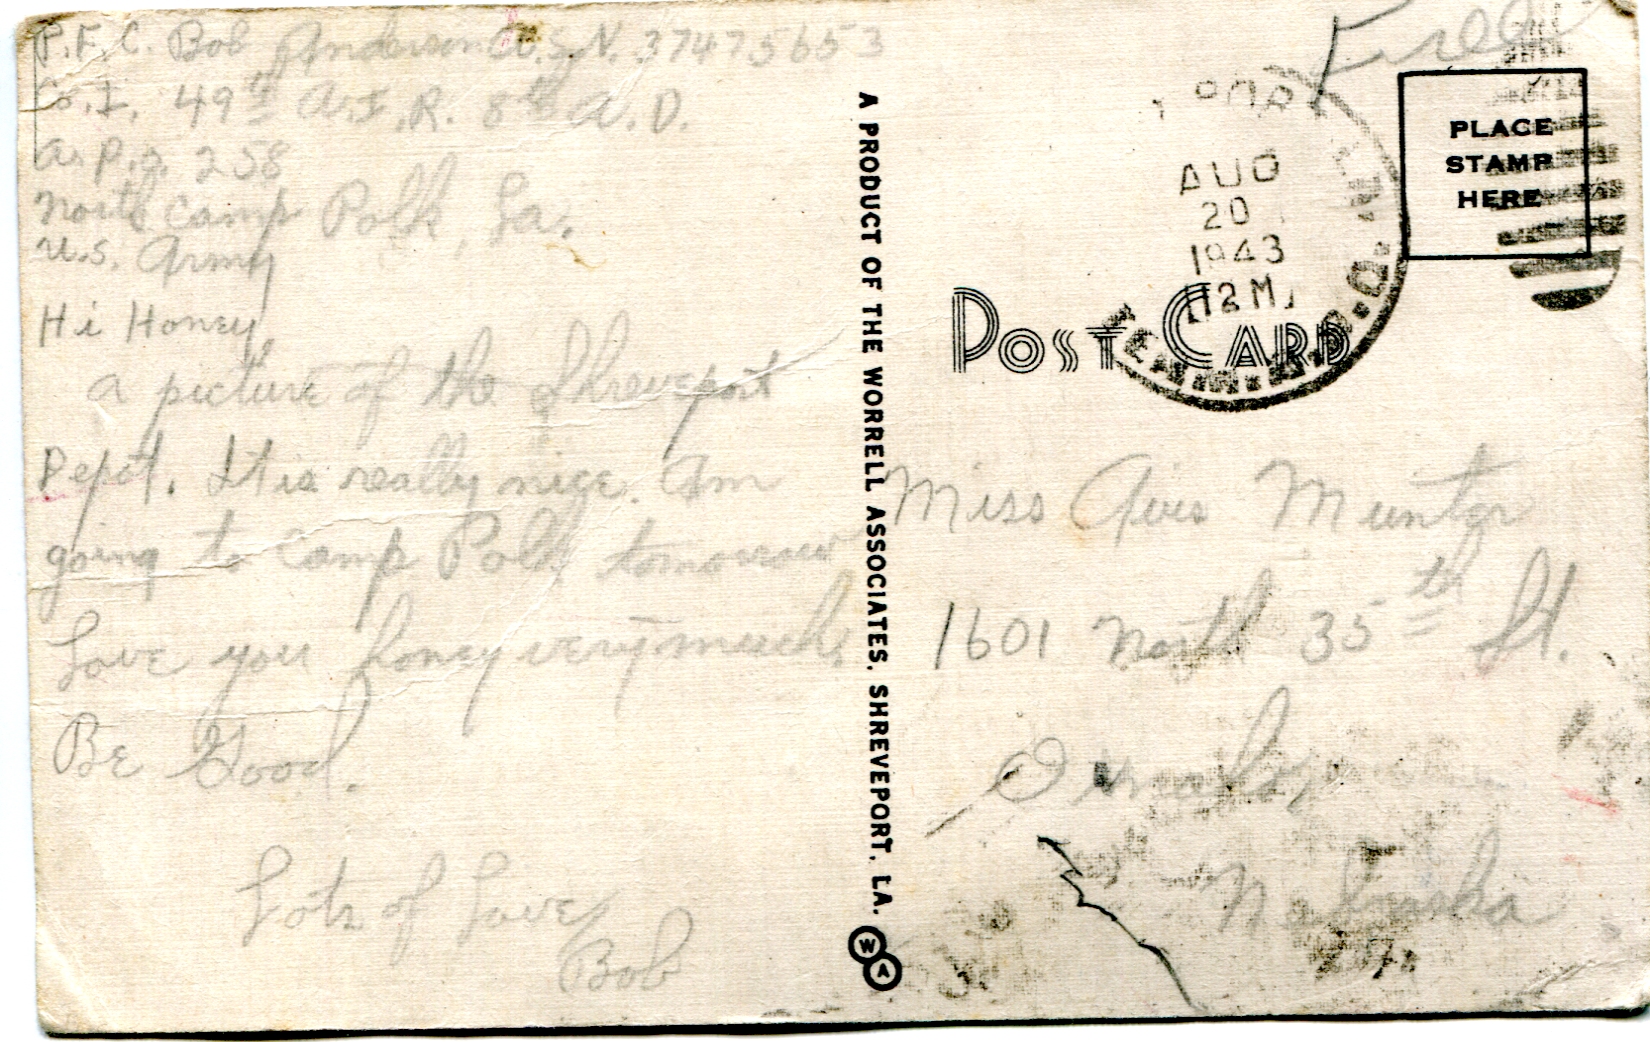 P.F.C. Bob Anderson A.S.N. 37475653
Co. I. 49th A.I.R. 8th A.D.
A.P.O. 258
North Camp Polk, La.
U.S. Army
Hi Honey
A picture of the Shreveport
Depot. It is really nice. Am
going to Camp Polk tomorrow
Love you honey very much.
Be Good.
Lots of Love
Bob
A PRODUCT OF THE WORRELL ASSOCIATES, SHREVEPORT, LA.
WA
Free
PLACE
STAMP
HERE
AUG
20
1943
12 M
TERM. R.P.O.
POST CARD
Miss Avis Munter
1601 North 35th St.
Omaha
Nebraska